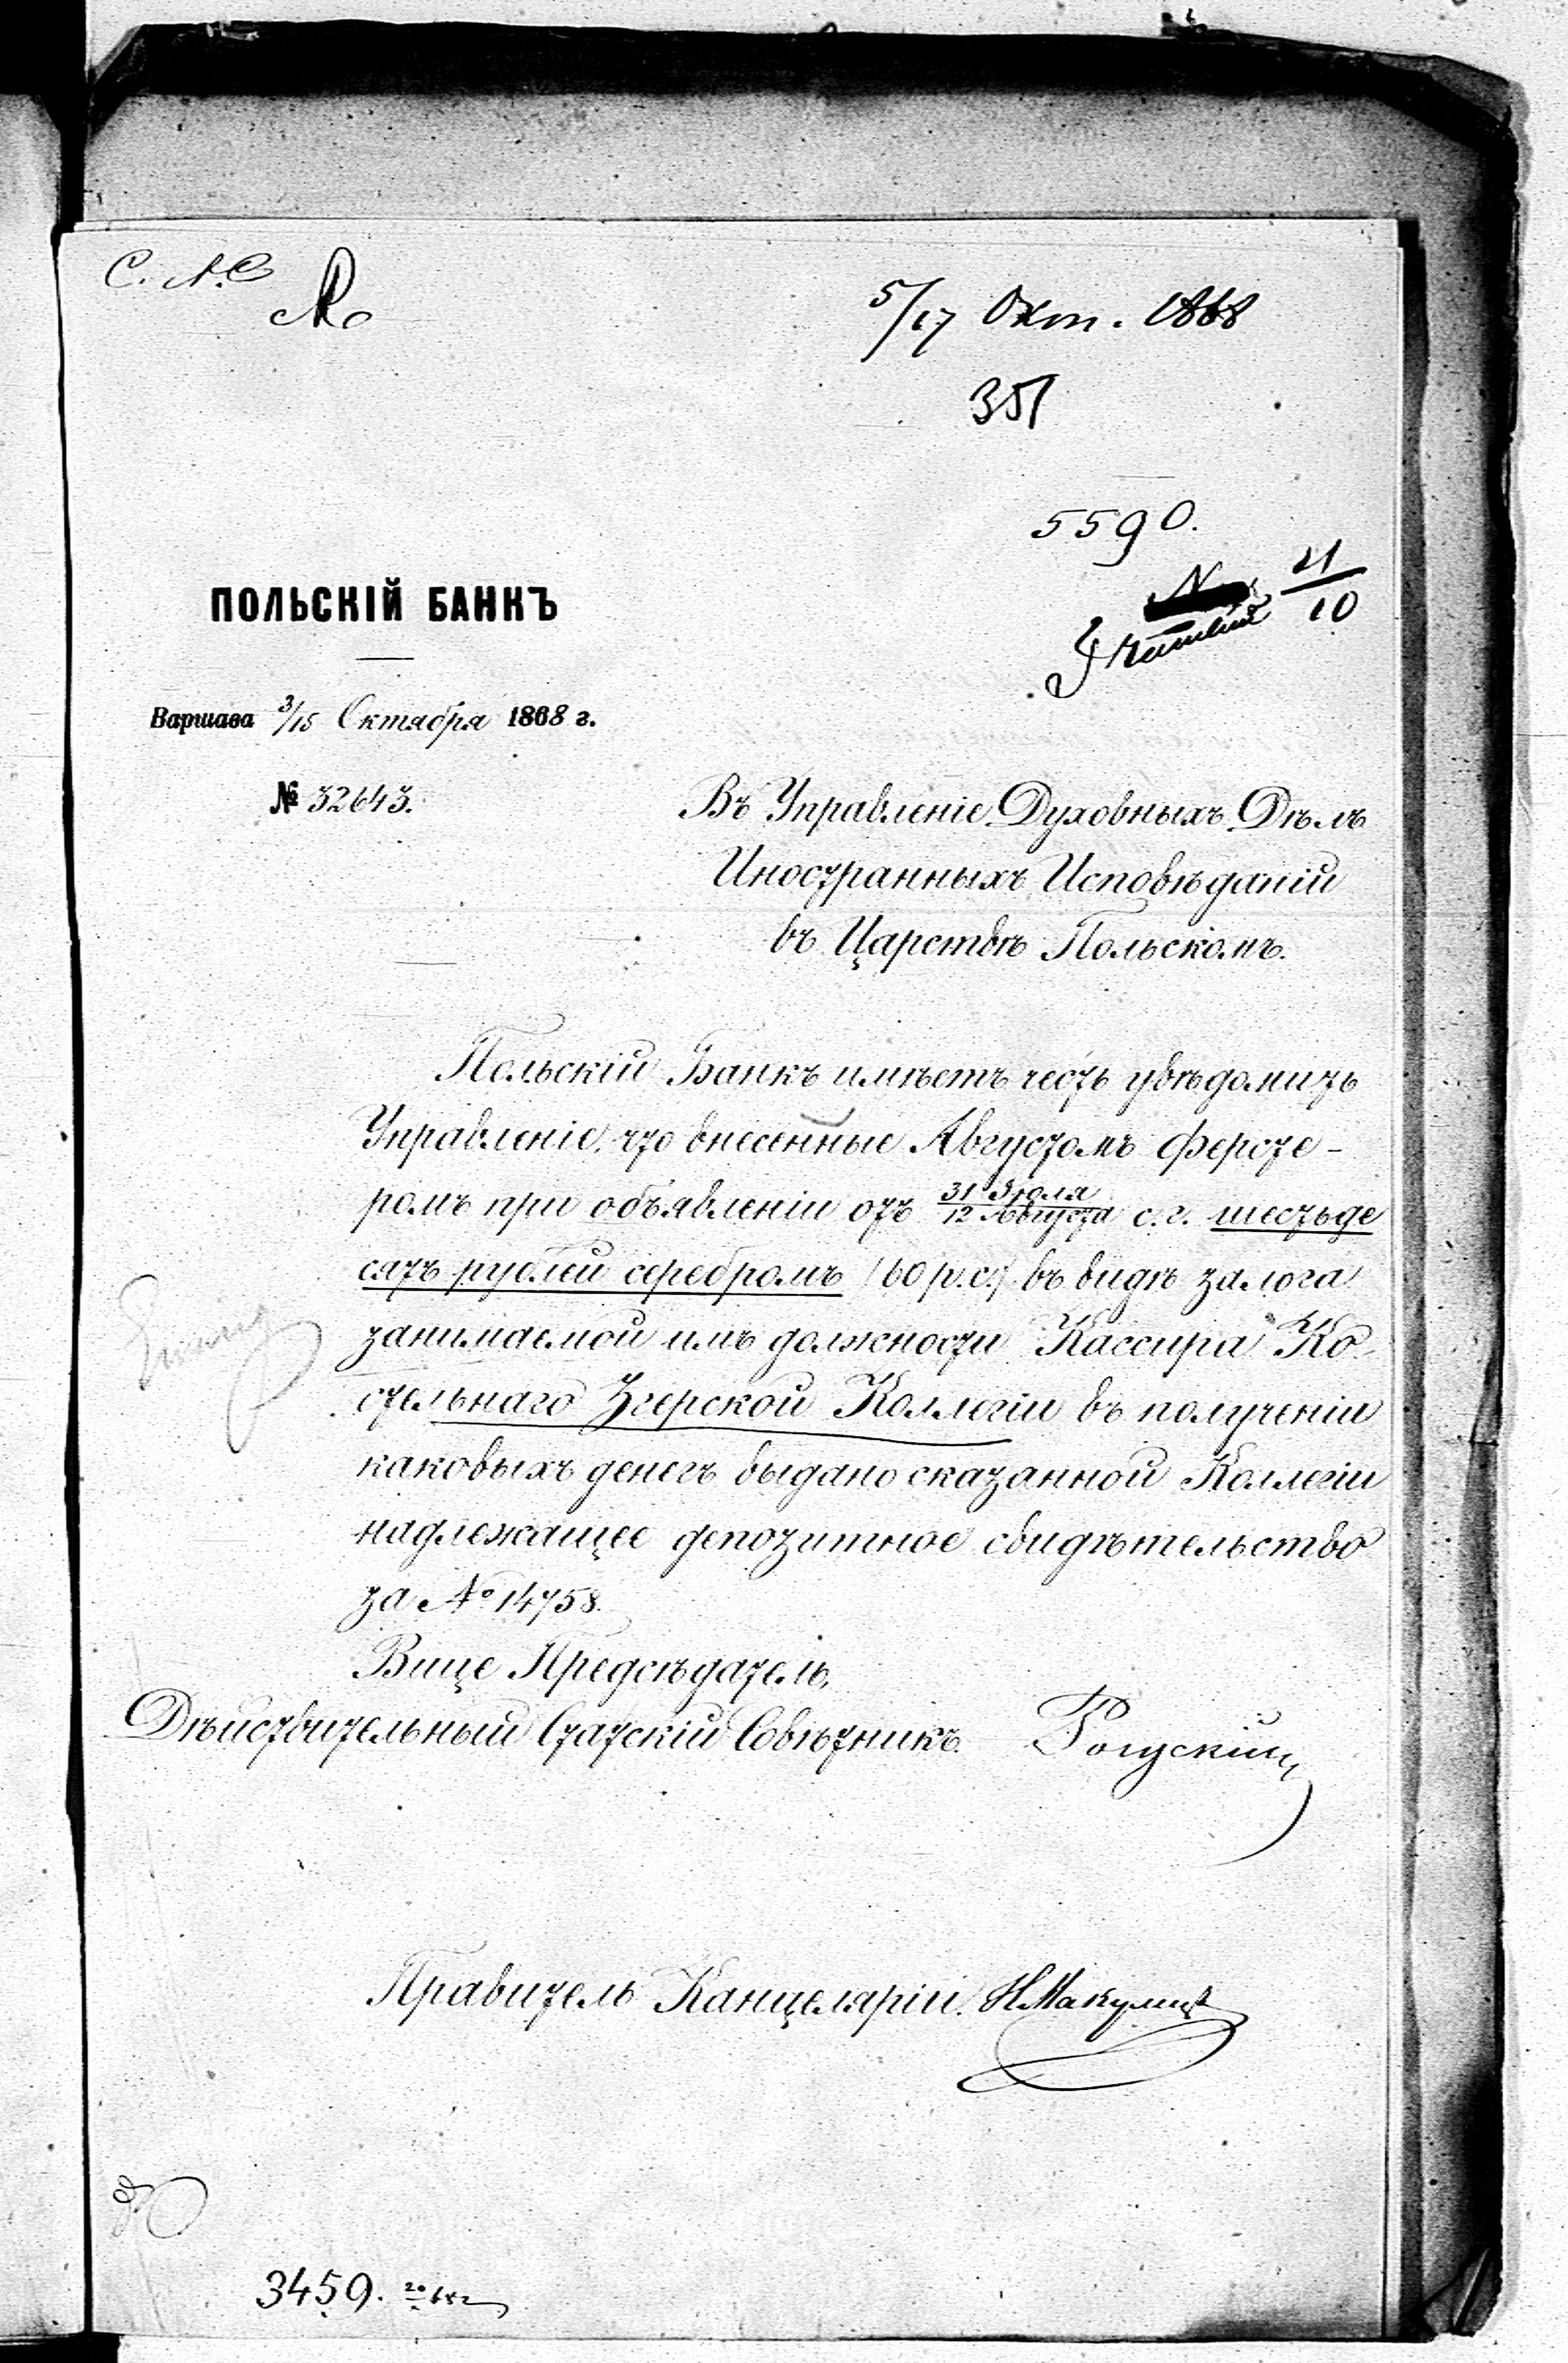 5/17 Окт. 1868
351
5590.
21/10
ПОЛЬСКІЙ БАНКЪ
Варшава 3/15 Октября 1868 г.
№ 32643.
Въ Управленіе Духовныхъ Дѣлъ
Иностранныхъ Исповѣданій
въ Царствѣ Польскомъ.
Польскій Банкъ имѣетъ честь увѣдомить
Управленіе, что внесенные Августомъ Ферсте-
ромъ при объявленіи отъ 31 Іюля/12 Августа с. г. шестьде
сятъ рублей серебромъ (60 р. с.) въ видѣ залога
занимаемой имъ должности Кассира Ко-
стельнаго Згерской Коллегіи въ полученіи
каковыхъ денегъ выдано сказанной Коллегіи
надлежащее депозитное свидѣтельство
за № 14758.
Вице Предсѣдатель,
Дѣйствительный Статскій Совѣтникъ.
Правитель Канцеляріи.
3459.